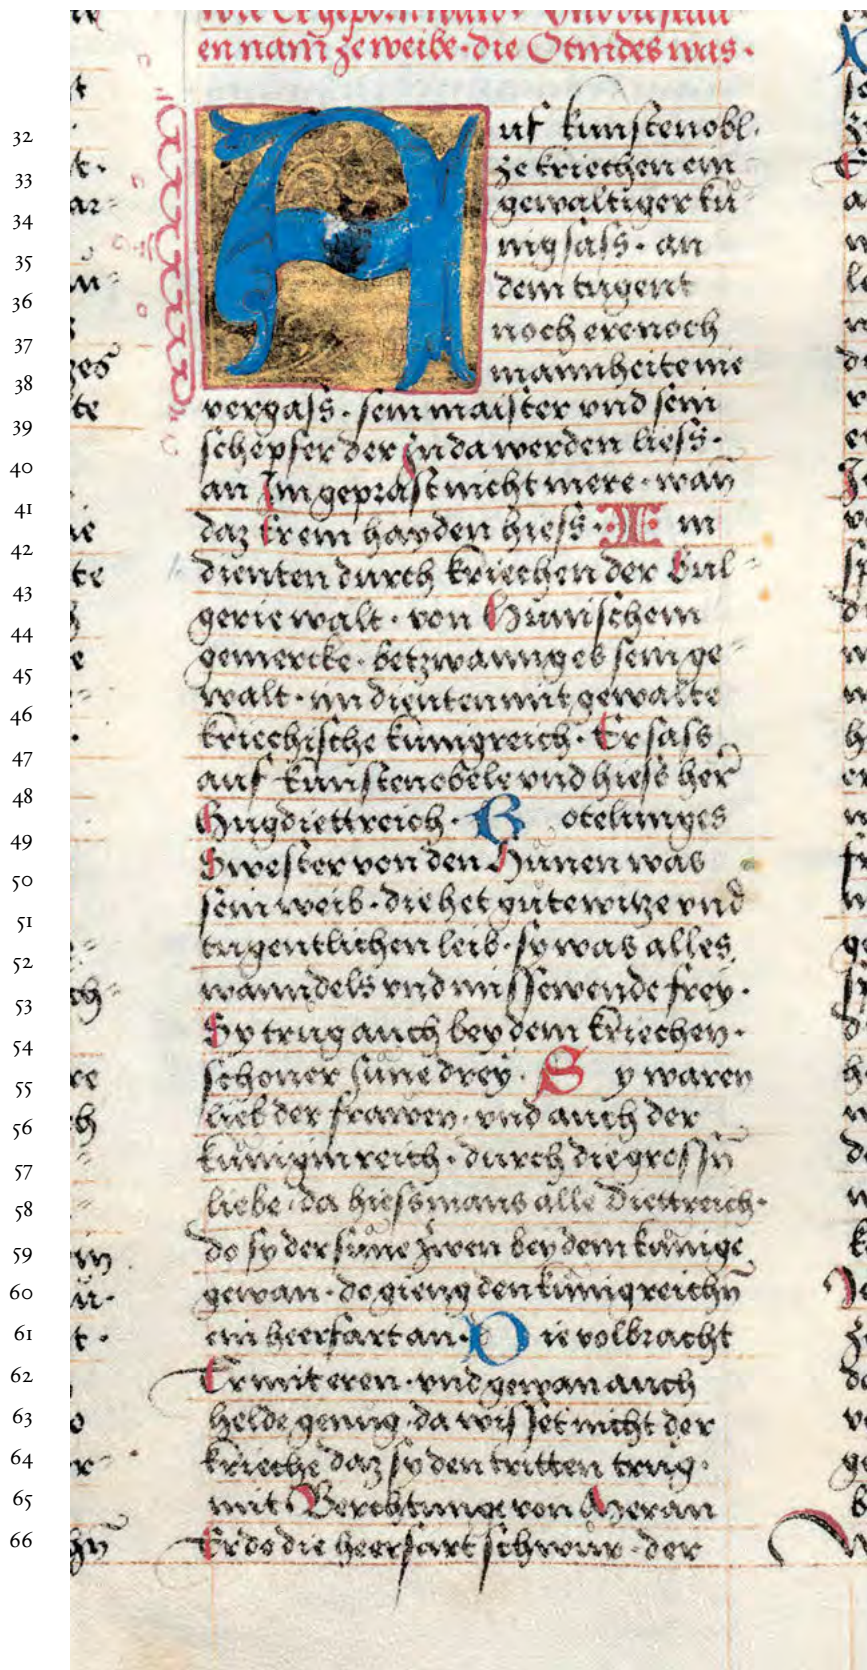 wie Er geporn ward · Vnd die frau
en nam ze weibe · die Otnides was ·
32 Auf kunstenobl ·
33 ze kriechen ein
34 gewaltiger kü
35 nig sass · an
36 dem tugent
37 noch ere noch
38 mannheite nie
39 vergass · sein maister vnd sein
40 schepfer der In da werden liess ·
41 an Im geprast nicht mere · wañ
42 daz Er ein hayden hiess · Im
43 dienten durch kriechen der Bul-
44 gerie walt · von Hünischem
gemercke · betzwannges sein ge-
45 walt · im dienten mit gewalte
46 kriechische künigreich · Er sass
47 auf kunstenobele vnd hiess her
48 Hugdiettreich · Botelunges
49 Swester von den Hünen was
50 sein weib · die het gůte witze vnd
51 tugentlichen leib · sy was alles
52 wanndels vnd missewende frey ·
53 Sy trug auch bey dem kriechen ·
54 schoner süne drey · Sy waren
55 lieb der frawen · vnd auch der
56 künigin reich · durch die grossñ
57 liebe · da hiess mans alle Diettreich ·
58 do sy der süne zwen bey dem künige
59 gewan · do gieng den künig reichñ
60 ein heerfart an · Die volbracht
61 Er mit eren · vnd gewan auch
62 helde genůg · da wisset nicht der
63 krieche daz sy den tritten trůg ·
64 mit Berchtunge von Meran
65 Er do die heerfart schwůr · der
66